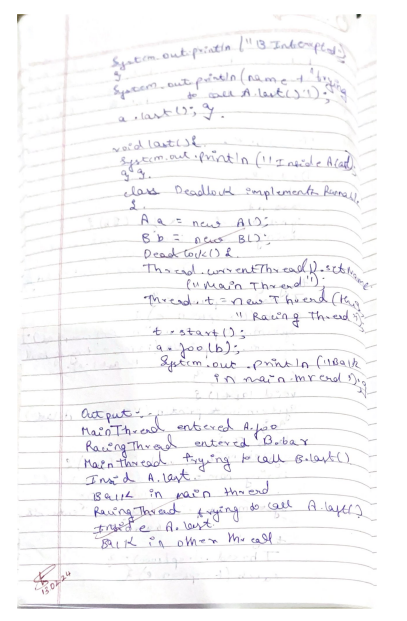 System.out.println ("B Interrupted");
}
System.out.println (name + "trying
to call A.last()");
a.last(); }
void last() {
System.out.println ("Inside A.last
} }
class Deadlock implements Runnable
{
A a = new A();
B b = new B();
Deadlock() {
Thread.currentThread().setName
("Main Thread");
Thread.t = new Thread (this,
"Racing Thread");
t.start();
a.foo(b);
System.out.println ("Back
in main thread"); }
Output -
MainThread entered A.foo
RacingThread entered B.bar
Mainthread trying to call B.last()
Insid A.last
Back in main thread
Racing Thread trying to call A.last()
Inside A.last
Back in other thread
13.02.24